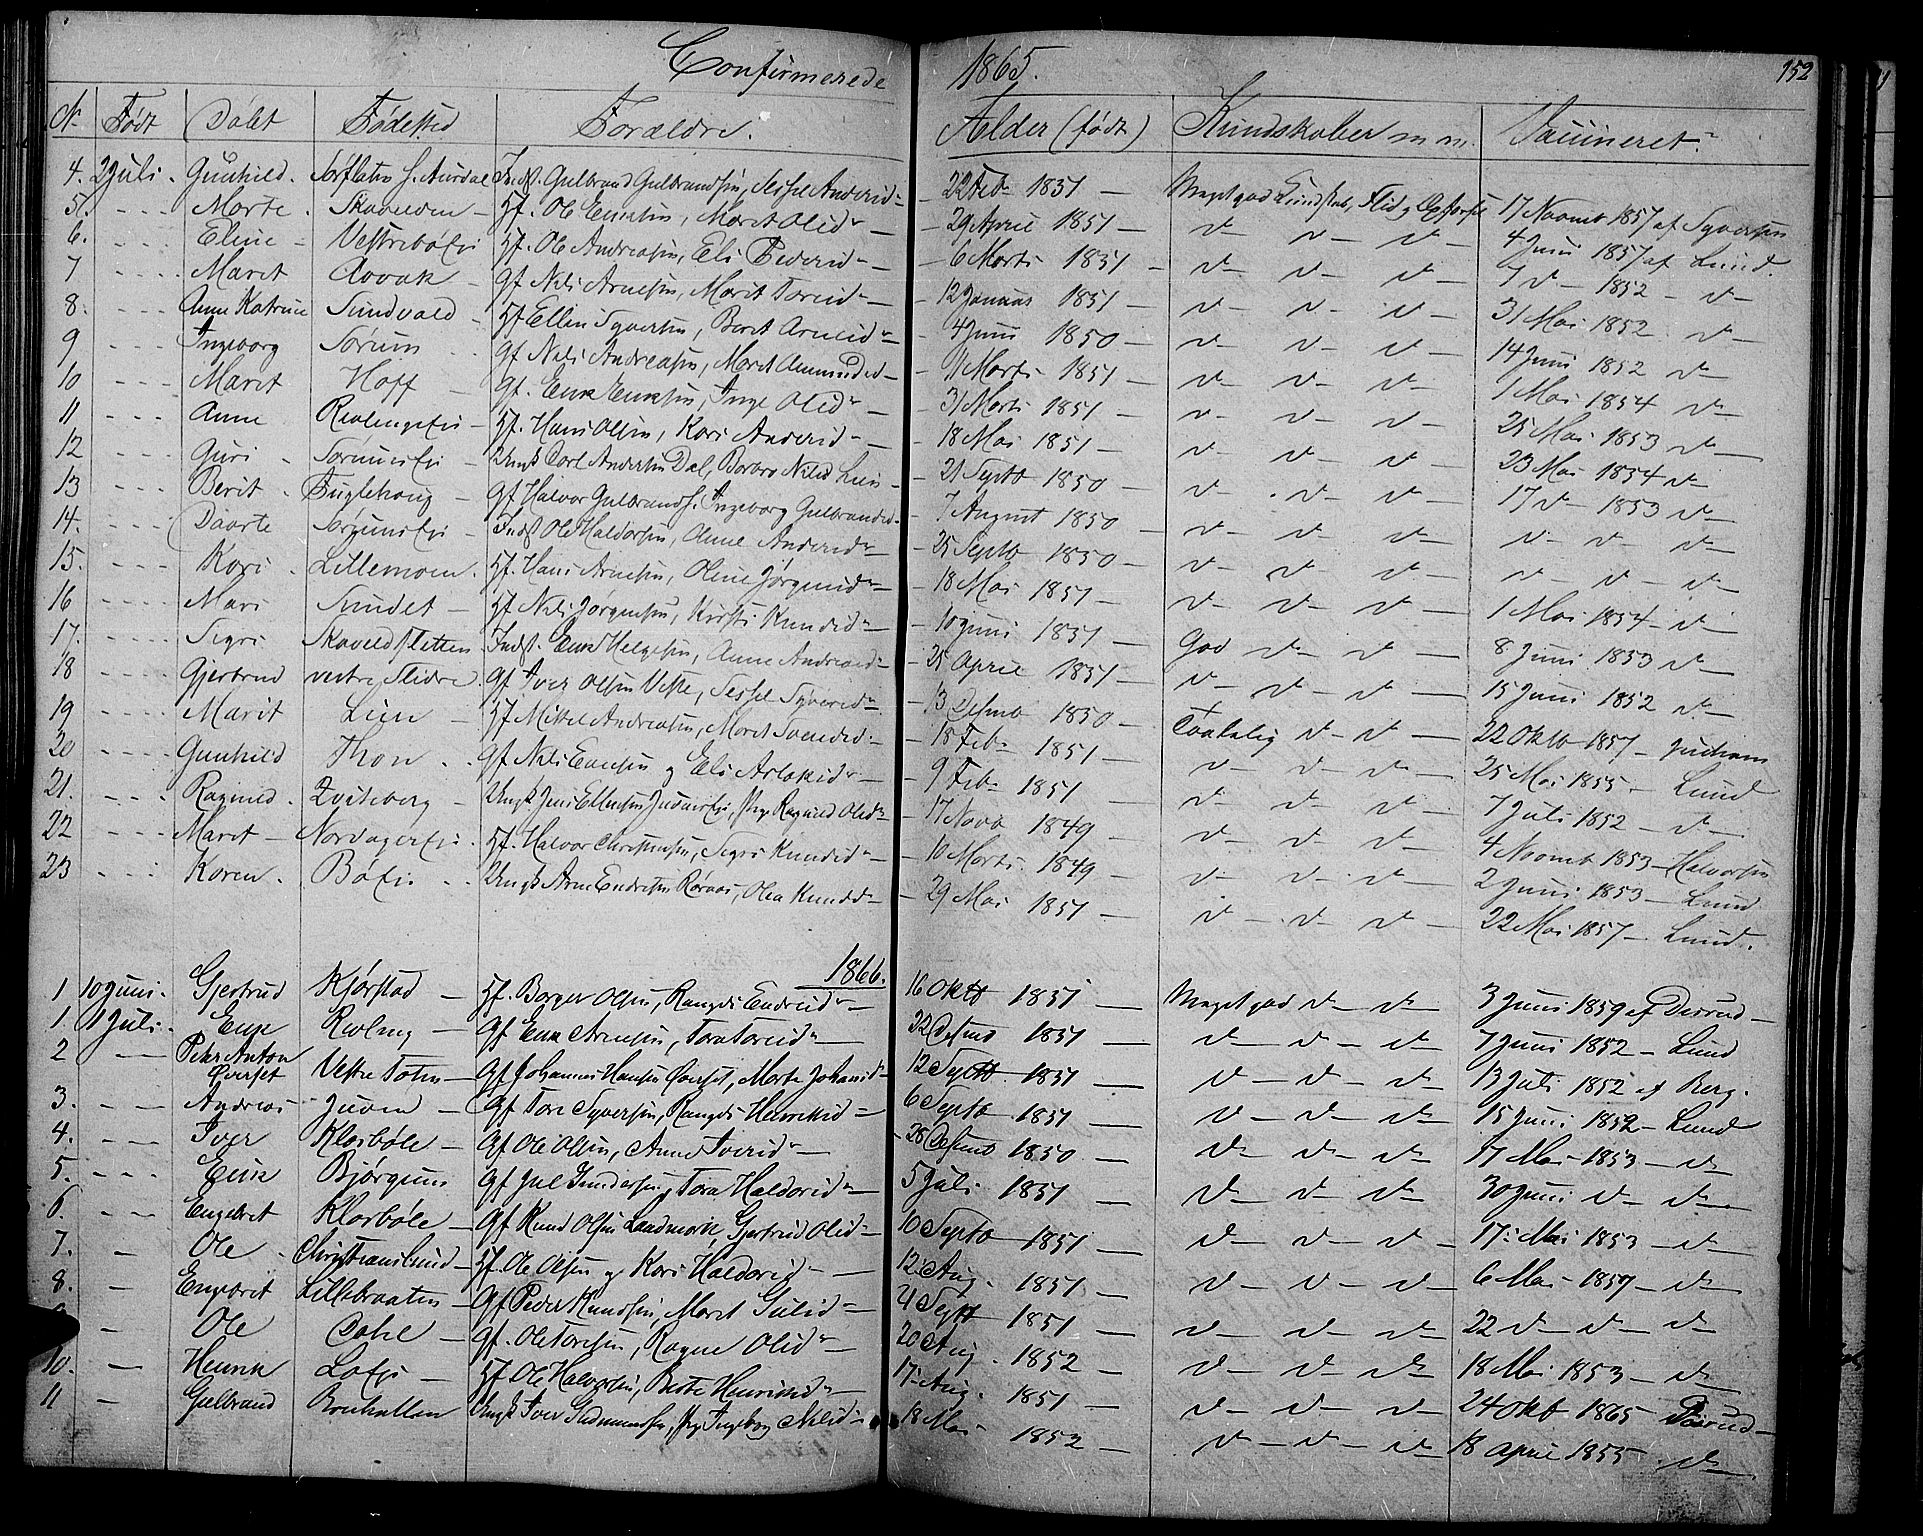 Confirmerede 1865. 152
N. Født Døbt Fødested Forældre. Alder (født) Kundskaber m m. Vaccineret.
4. 2 Juli. Gunhild. S. Aurdal Indst. Gulbrand Gulbrandsen, Sissel Andersd 22 Feb 1851 — Meget god Kundskab, Flid og Opførsel 17 Novemb 1857 af Syversen
5. - - - Marte. Skavelden — Hf. Ole Ericksen, Marit Olsd — 29 April 1851 — d— d— d— 4 Juni 1857 af Lund.
6. - - - Eline — Vestrebøe Hf. Ole Andreasen, Eli Pedersd — 6 Marts 1851 — d— d— d— 7 d— 1852 — d—
7 - - - Marit Aavok — Gf Nils Arnesen, Marit Toresd — 12 Januar 1851 — d— d— d— 31 Mai 1852 d—
8. - - - Anne Katrine Sundvold — Hf Ellin Syversen, Berit Arnesd — 4 Juni 1850 — d— d— d— 14 Juni 1852 d—
9 - - - Ingeborg Sørum Gf Nils Andreasen, Marit Amundsd — 9 Marts 1851 — d— d— d— 1 Mai 1854 d—
10 - - - Marit Hoff — Gf. Erik Eriksen, Inge Olsd — 31 Marts 1851 — d— d— d— 25 Mai 1853 d—
11 - - - Anne — Hf. Hans Olsen, Kari Andersd — 18 Mai 1851 — d— d— d— 23 Mai 1854 d—
12 - - - Guri — Ungk Carl Andersen Dal, Barbro Nilsd Lien — 21 Septb 1850 — d— d— d— 17 d— 1853 d—
13 - - - Berit. Fuglehaug — Gf Halvor Gulbrands. Ingeborg Gulbrandsd — 7 August 1850 — d— d— d— d— d— d—
14. - - - Daarte Indst Ole Haldorsen, Anne Andersd — 25 Septb 1850 — d— d— d— d— d— d—
15. - - - Kari. Lillemoen. Hf. Hans Arnesen, Oline Jørgensd — 18 Mai 1851 — d— d— d— 1 Mai 1854 — d—
16 - - - Mari Sundet — Hf Nils Jørgensen, Kirsti Knudsd — 10 Juni 1851 — God d— d— 8 Juni 1853 d—
17. - - - Sigri Skaveldsletten Indst. Erik Helgesen, Anne Andreasd — 25 April 1851 — d— d— d— 15 Juni 1852 d—
18 - - - Gjertrud vestre Slidre. Gf Iver Olsen Sissel Syversd — 13 Desemb 1850 — Taalelig d— d— 22 Oktb 1857 —
19 - - - Marit Lien — Hf Mikkel Andreasen, Marit Svendsd — 18 Feb 1851 — d— d— d— 25 Mai 1855 — Lund
20 - - - Gunhild Thon Gf Nils Ericksen og Eli Aslaksd — 9 Feb 1851 — d— d— d— 7 Juli 1852 — d—
21. - - - Ragnild. Qviteberg — Ungk Jens Ellingsen Pig Ragnild Olsd 17 Novb 1849 — d— d— d— 4 Novemb 1853 — Halvorsen
22 - - - Marit — Nordager Hf. Halvor Christensen, Sigri Knudsd — 10 Marts 1849 — d— d— d— 2 Juni 1853 — Lund
23 - - - Karen. Bøe Ungk Arne Endresen Røraas, Olea Knudsd — 29 Mai 1851 — d— d— d— 22 Mai 1857 — Lund.
1866.
1 10 Juni. Gjertrud Kjørstad — Hf. Borger Olsen, Rangdi Endresd — 16 Oktb 1851 — Meget god d— d— 3 Juni 1859 af
1. 1 Juli. Erik — Gf Erik Arnesen, Tora Toresd — 22 Desmb 1851 — d— d— d— 7 Juni 1852 — Lund
2 — Peter Anton Vestre Toten — Gf Johannes Hansen Marte Johansd — 12 Septb 1851 — d— d— d— 13 Juli 1852 af Berg.
3. — Andreas Juven — Gf Tore Syversen, Rangdi Henriksd — 6 Septb 1851 — d— d— d— 15 Juni 1852 — Lund
4. — Iver Klosbøle — Gf Ole Olsen, Anne Iversd — 28 Desemb 1850 — d— d— d— 17 Mai 1853 — d—
5. — Erik Bjørgum Gf Jul Gundersen, Tora Haldorsd — 5 Juli 1851 — d— d— d— 30 Juni d— d—
6. — Engebret Klosbøle — Gf Knud Olsen Landmark, Gjertrud Olsd — 10 Septb 1851 — d— d— d— 17 Mai 1853 — d—
7. — Ole Christianslund — Hf. Ole Olsen og Kari Haldorsd — 12 Aug. 1851 — d— d— d— 6 Mai 1857 — d—
8. — Engebrit Lillebraaten — Gf Peder Knudsen, Marit Gulsd — 21 Septb 1851 — d— d— d— 22 d— d— d—
— Ole Gf. Ole Toresen, Ragne Olsd — 20 Aug. 1852 — d— d— d— 18 Mai 1853 — d—
10. — Henrik — Hf Ole Halvorsen, Berte Henriksd — 17 Aug. 1851 — d— d— d— 24 Oktb 1865
11 — Gulbrand Ungk Iver Gudmundsen, Pig Ingebor Nilsd — 18 Mai 1852 — d— d— d— 18 April 1855 d—